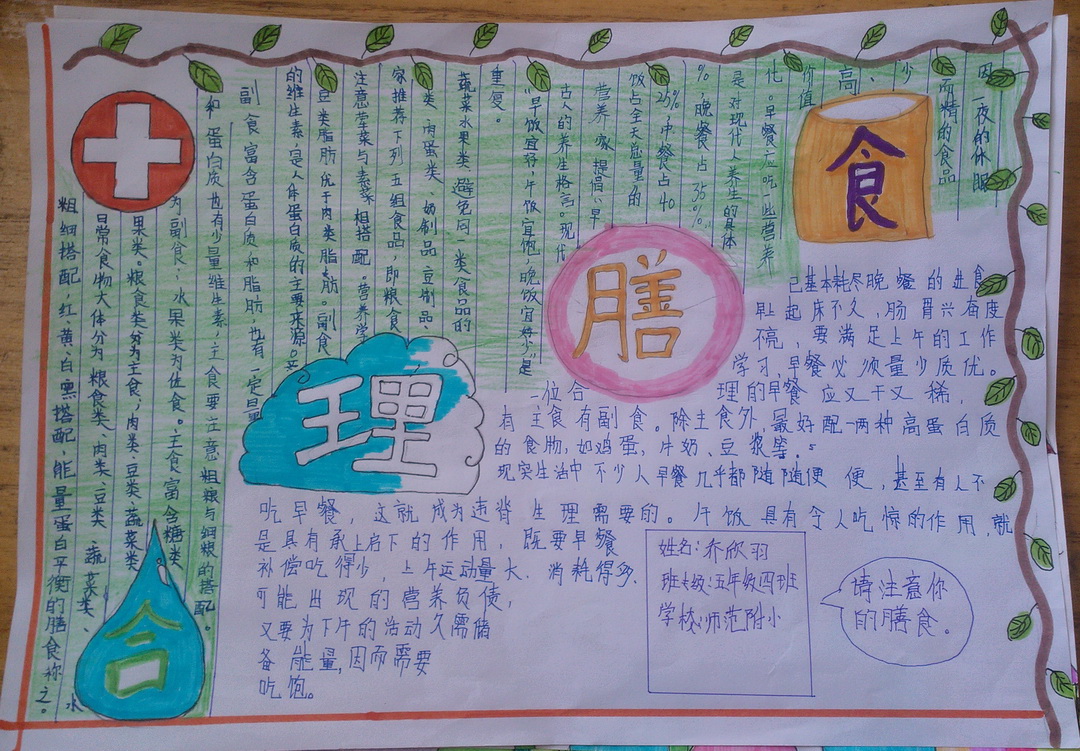 合
理
膳
食
粗细搭配,红、黄、白、黑搭配,能量蛋白平衡的膳食称之。
日常食物大体分为粮食类、肉类、豆类、蔬菜类、水
果类。粮食类分为主食;肉类、豆类、蔬菜类
为副食;水果类为佐食。主食富含糖类
和蛋白质也有少量维生素,主食要注意粗粮与细粮的搭配。
副食富含蛋白质和脂肪,也有一定量
的维生素,是人体蛋白质的主要来源。另
豆类脂肪优于肉类脂肪。副食
注意荤菜与素菜相搭配。营养学
家推荐下列五组食品,即粮食
类、肉蛋类、奶制品、豆制品、
蔬菜水果类,避免同一类食品的
重复。
“早饭宜好,午饭宜饱,晚饭宜少”是
古人的养生格言。现代
营养家提倡:早
饭占全天总量的
25%,中餐占40
%,晚餐占35%。
是对现代人类生的具体
化。早餐应吃一些营养
价值
高、
少
而精的食品
因一夜的休眠
己基本耗尽晚餐的进食
早起床不久,肠胃兴奋度
不高,要满足上午的工作
学习,早餐必须量少质优。
一位合理的早餐应又干又稀,
有主食有副食。除主食外,最好配一两种高蛋白质
的食物,如鸡蛋,牛奶、豆浆等。
现实生活中不少人早餐几乎都随随便便,甚至有人不
吃早餐,这就成为违背生理需要的。午饭具有令人吃惊的作用,就
是具有承上启下的作用,既要早餐
补偿吃得少,上午运动量大、消耗得多、
可能出现的营养负债,
又要为下午的活动久需储
备能量,因而需要
吃饱。
姓名:乔欣羽
班级:五年级四班
学校:师范附小
请注意你
的膳食。